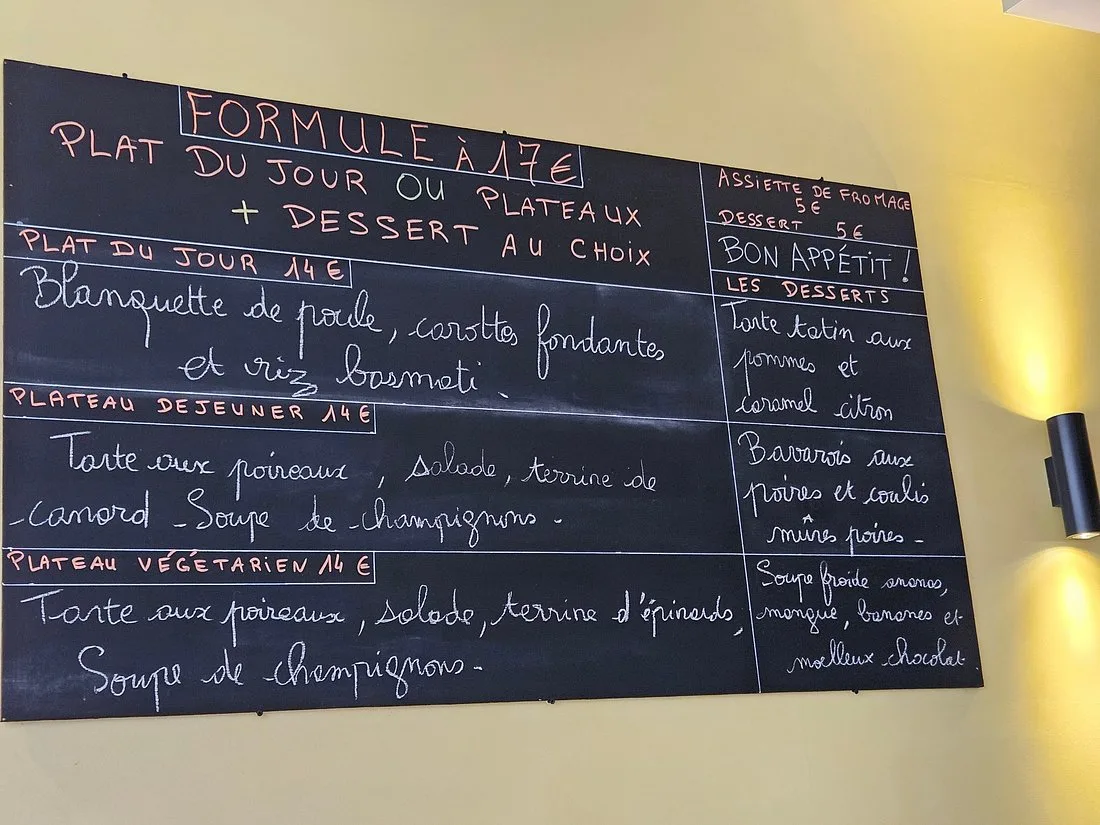 FORMULE À 17 €
PLAT DU JOUR OU PLATEAUX
+ DESSERT AU CHOIX
PLAT DU JOUR 14 €
Blanquette de poule, carottes fondantes
et riz basmati.
PLATEAU DEJEUNER 14 €
Tarte aux poireaux, salade, terrine de
canard - Soupe de champignons.
PLATEAU VÉGÉTARIEN 14 €
Tarte aux poireaux, salade, terrine d'épinards,
Soupe de champignons-
ASSIETTE DE FROMAGE
5 €
DESSERT 5 €
BON APPÉTIT !
LES DESSERTS
Tarte tatin aux
pommes et
caramel citron
Bavarois aux
poires et coulis
mûres poires -
Soupe froide ananas,
mangue, bananes et
moelleux chocolat.